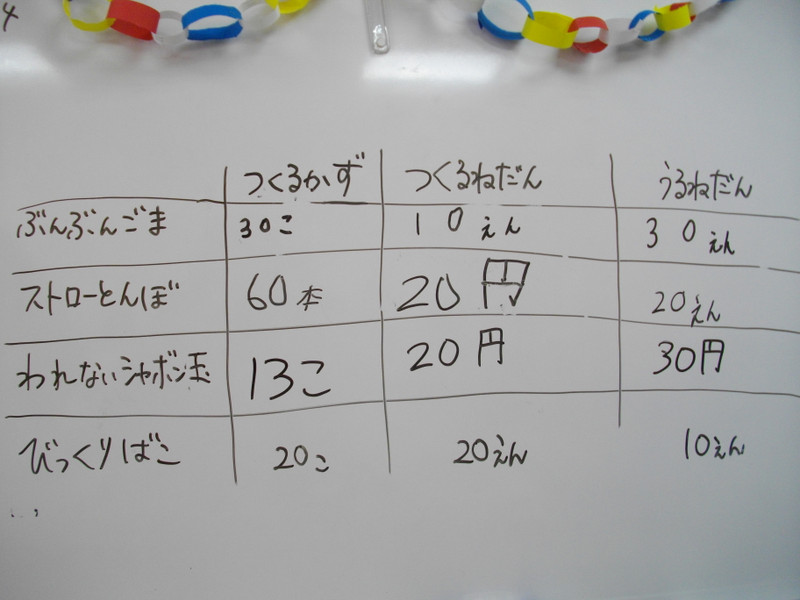 4
つくるかず つくるねだん うるねだん
ぶんぶんごま 30こ 10えん 30えん
ストローとんぼ 60本 20円 20えん
われないシャボン玉 13こ 20円 30円
びっくりばこ 20こ 20えん 10えん